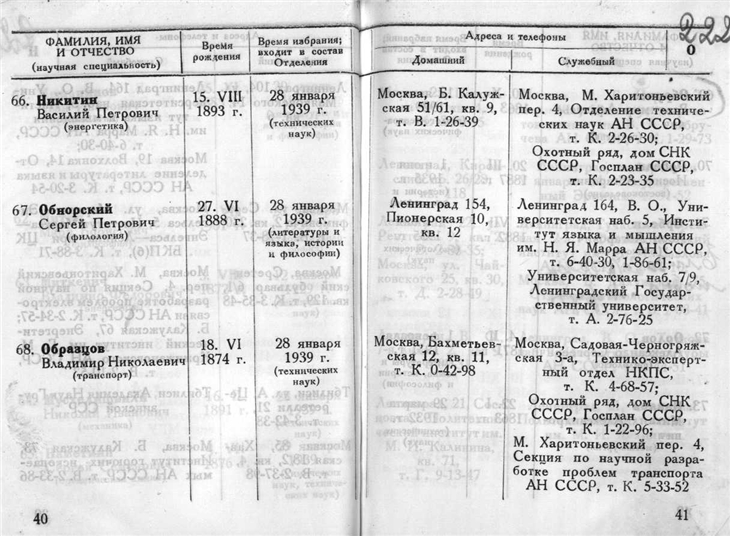 222
ФАМИЛИЯ, ИМЯ
И ОТЧЕСТВО
(научная специальность)
Время
рождения
Время избрания;
входит в состав
Отделения
66. Никитин
Василий Петрович
(энергетика)
15. VIII
1893 г.
28 января
1939 г.
(технических
наук)
67. Обнорский
Сергей Петрович
(филология)
27. VI
1888 г.
28 января
1939 г.
(литературы и
языка, истории
и философии)
68. Образцов
Владимир Николаевич
(транспорт)
18. VI
1874 г.
28 января
1939 г.
(технических
наук)
40
Адреса и телефоны
О
Домашний
Служебный
Москва, Б. Калуж-
ская 51/61, кв. 9,
т. В. 1-26-39
Москва, М. Харитоньевский
пер. 4, Отделение техниче-
ских наук АН СССР,
т. К. 2-26-30;
Охотный ряд, дом СНК
СССР, Госплан СССР,
т. К. 2-23-35
Ленинград 154,
Пионерская 10,
кв. 12
Ленинград 164, В. О., Уни-
верситетская наб. 5, Инсти-
тут языка и мышления
им. Н. Я. Марра АН СССР,
т. 6-40-30, 1-86-61;
Университетская наб. 7/9,
Ленинградский Государ-
ственный университет,
т. А. 2-76-25
Москва, Бахметьев-
ская 12, кв. 11,
т. К. 0-42-98
Москва, Садовая-Черногряж-
ская 3-а, Технико-эксперт-
ный отдел НКПС,
т. К. 4-68-57;
Охотный ряд, дом СНК
СССР, Госплан СССР,
т. К. 1-22-96;
М. Харитоньевский пер. 4,
Секция по научной разра-
ботке проблем транспорта
АН СССР, т. К. 5-33-52
41